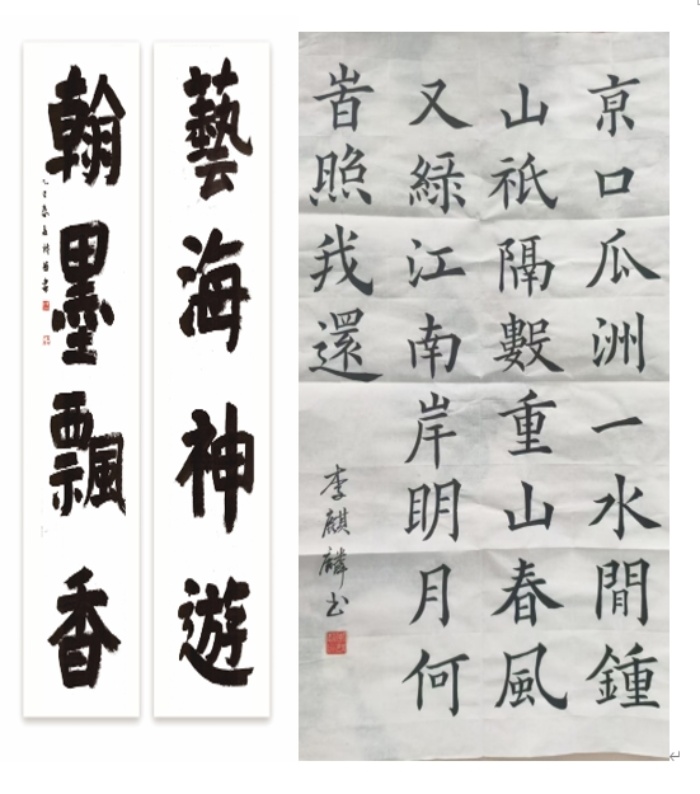 藝海神遊
翰墨飄香
亰口瓜洲一水閒鍾
山祇隔數重山春風
又緑江南岸明月何
旹照我還
李麒麟书